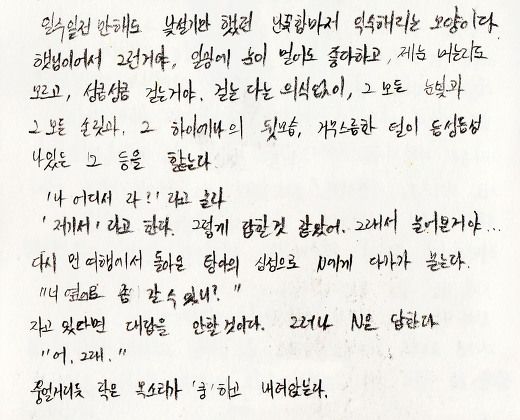 일주일전만해도 낯설기만 했던 난꽃향마저 익숙해지는 모양이다
햇님이어서 그런거야, 일광에 눈이 멀어도 좋다하고, 제눈 머는지도
모르고, 성큼성큼 걷는거야. 걷는다는 의식없이, 그 모든 눈빛과
그 모든 손짓과, 그 하이에나의 뒷모습, 거무스름한 털이 듬성듬성
나있는 그 등을 핥는다
'나 어디서 라?' 라고
'저기서' 라고 한다. 그렇게 답할것 같았어. 그래서 물어본거야...
다시 먼 여행에서 돌아온 탕아의 심정으로 N에게 다가가 묻는다.
"너 옆으로 좀 갈 수 있니?"
자고 있다면 대답을 안할것이다. 그러나 N은 답한다
"어, 그래."
웅얼거리듯 낮은 목소리가 '쿵'하고 내려앉는다.